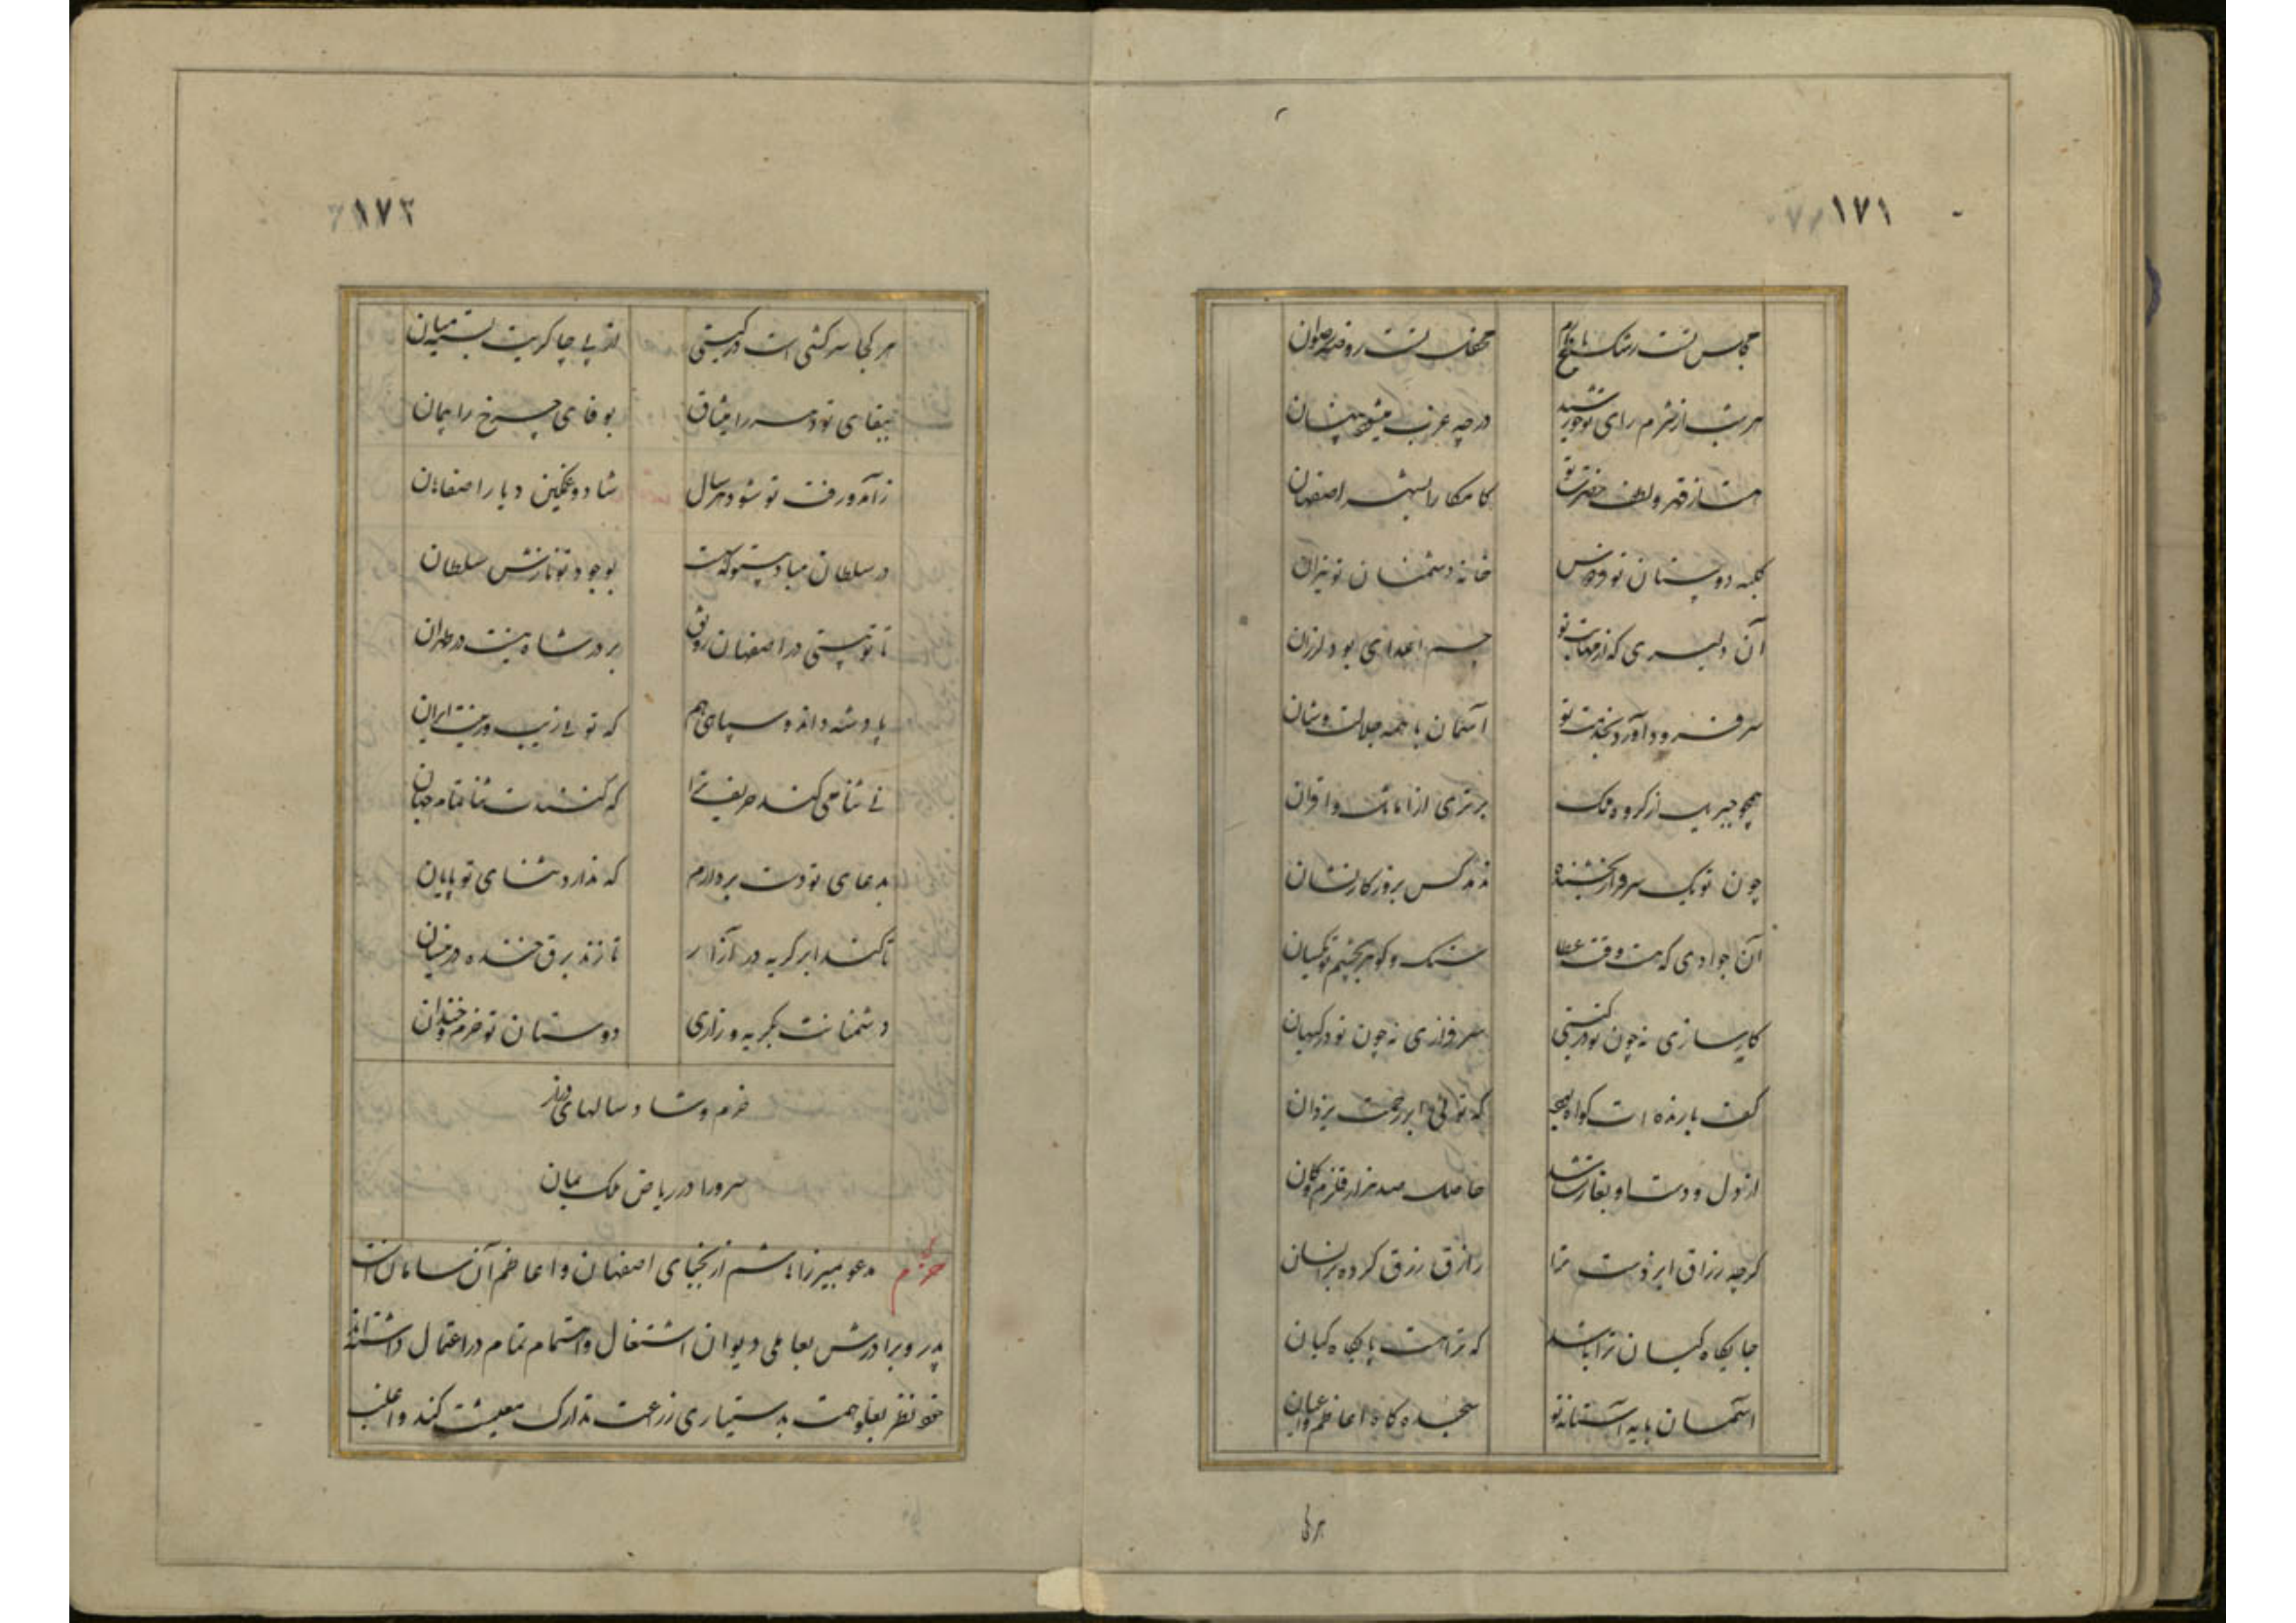 ۱۷۱
مجلس تست رشک باغ ارم محفل تست روضه رضوان
هر شب از شرم رای تو خورشید در چه غرب میشود پنهان
هست از قهر و لطف حضرت تو کامکارا بشهر اصفهان
کلبه دوستان تو فردوس خانه دشمنان تو نیران
آن دلیری که از مهابت تو جسم اعدای بود لرزان
سر فرود آورد بخدمت تو آسمان با همه جلالت و شان
همچو جبریل از گروه ملک برتری از اماثل و اقران
چون تو یک سرفراز بخشنده ندهد کس بروزگار نشان
آن جوادی که هست وقت عطا سنگ و گوهر بچشم تو یکسان
کارسازی نه چون تو در گیتی سرفرازی نه چون تو در کیهان
کف بارنده ات گواه بهمه که توئی ابر رحمت یزدان
از دل و دست او بغارت شد حاصل صد هزار قلزم و کان
گرچه رزاق ایزدست ترا رازق رزق کرده بر انسان
جایگاه کیان ترا باشد که تراست پایگاه کیان
آسمان پایه آستانه تو سجده گاه اعاظم و اعیان
هر کجا
۱۷۲
هر کجا سرکشی است در گیتی از پی چاکریت بسته میان
ببقای تو دهر را میثاق بوفای چرخ را پیمان
ز آمد و رفت تو شود هر سال شاد و غمگین دیار اصفاهان
در سلطان مباد بیتو که هست بوجود تو نازش سلطان
تا تو هستی در اصفهان رونق بر در شاه نیست در طهران
پادشه داند و سپاهی هم که توئی زیب و زینت ایران
نی ثنا می کند حریف ترا که کنندت ثنا تمام جهان
بدعای تو دست بردارم که ندارد ثنای تو پایان
تا کند ابر گریه در آزار تا زند برق خنده در نیسان
دشمنانت بگریه و زاری دوستان تو خرم و خندان
خرم و شاد سالهای دراز
سرورا در ریاض ملک بمان
خرم مدعو میرزا هاشم از نجبای اصفهان و اعاظم آن سامان است
پدر و برادرش بعاملی دیوان اشتغال و اهتمام تمام در اعتمال داشته اند
خود نظر بعلو همت بدستیاری زرعت تدارک معیشت کند و اغلب